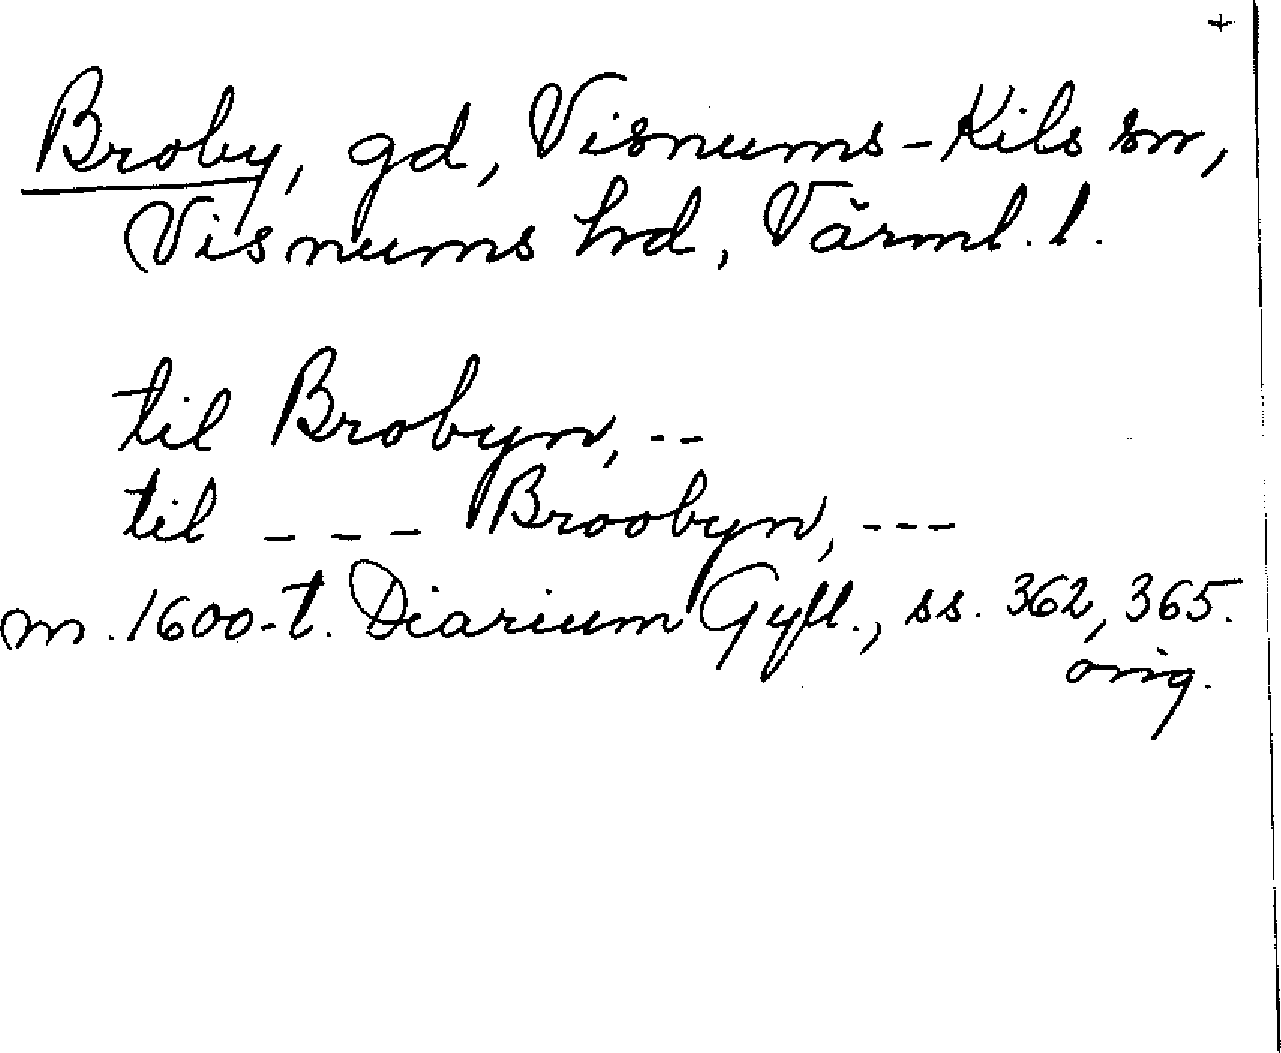 +
Broby, gd, Visnums-Kils sn,
Visnums hd, Värml. l.
til Brobyn, --
til --- Broobyn, ---
m. 1600-t. Diarium Gyll., ss. 362, 365.
orig.